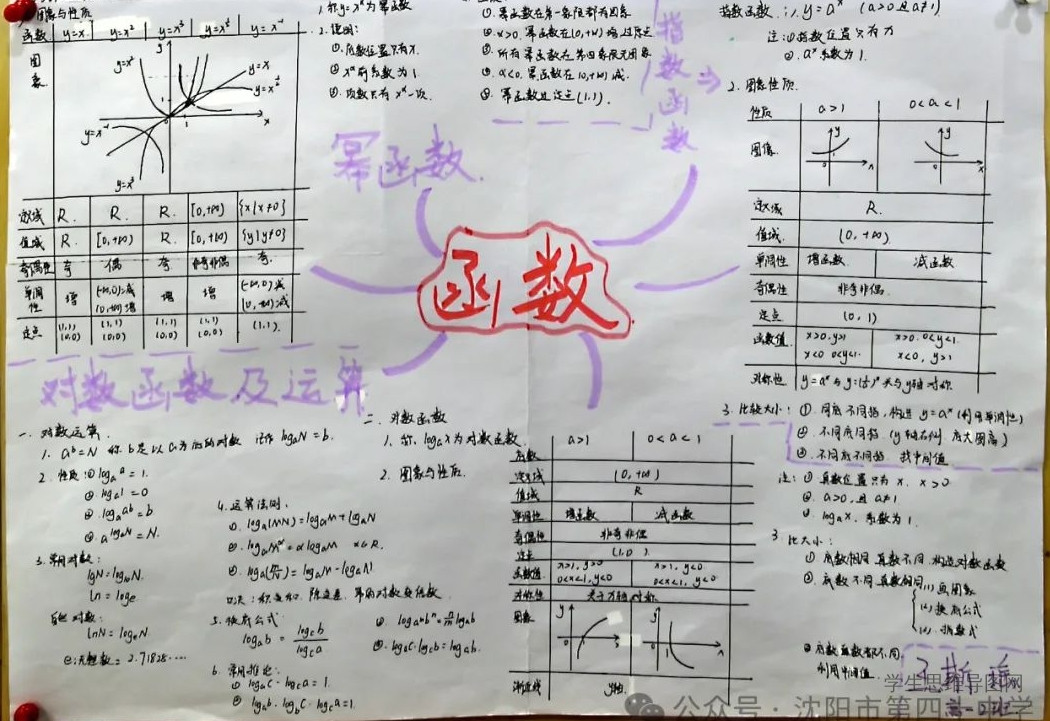 图象与性质
函数 y=x. y=x² y=x³ y=x^½ y=x⁻¹
图象
y=x²
y=x
y=x^½
y=x⁻¹
y=x³
定义域 R. R. R. [0,+∞) {x|x≠0}
值域 R. [0,+∞) R. [0,+∞) {y|y≠0}
奇偶性 奇 偶 奇 非奇非偶 奇.
单调性 增 (-∞,0)减 [0,+∞)增 增 增 (-∞,0)减 (0,+∞)减
定点 (1,1) (0,0) (1,1) (0,0) (1,1) (0,0) (1,1) (0,0) (1,1).
1. 称y=xᵅ为幂函数
2. 说明:
①. 底数位置只有x.
②. xᵅ前系数为1
③. 项数只有xᵅ一项.
①. 幂函数在第一象限都有图象
②. α>0. 幂函数在[0,+∞)增 过原点
③. 所有幂函数在第四象限无图象
④. α<0. 幂函数在(0,+∞)减.
⑤. 幂函数过定点(1,1).
幂函数.
指数函数
指数函数: 1. y=aˣ (a>0且a≠1)
注: ①指数位置只有x
②. aˣ系数为1.
2. 图象性质.
性质 a>1 0<a<1
图像
定义域 R.
值域. (0,+∞)
单调性 增函数 减函数
奇偶性 非奇非偶.
定点 (0,1)
函数值. x>0. y>1 x<0 0<y<1. x>0. 0<y<1. x<0, y>1
对称性 y=aˣ与y=(1/a)ˣ关于y轴对称.
3. 比较大小: ①. 同底不同指, 构造y=aˣ(利用单调性)
②. 不同底同指. (y轴右侧. 底大图高)
③. 不同底不同指. 找中间值
函数
对数函数及运算
一. 对数运算.
1. aᵇ=N 称b是以a为底的对数 记作logₐN=b.
2. 性质: ①logₐa=1.
②. logₐ1=0
③. logₐaᵇ=b
④. a^logₐN=N.
3. 常用对数:
lgN=log₁₀N.
自然对数:
lnN=logₑN
e:无理数=2.71828....
4. 运算法则.
①. logₐ(MN)=logₐM+logₐN
②. logₐMᵅ=αlogₐM α∈R.
③. logₐ(M/N)=logₐM-logₐN
5. 换底公式
logₐb=log꜀b/log꜀a
6. 常用推论:
①logₐc·log꜀a=1.
②logₐb·log_b c·log꜀a=1.
④. logₐc·log꜀b=logₐb.
二. 对数函数
1. 称. logₐx为对数函数
2. 图象与性质.
函数 a>1 0<a<1
定义域 (0,+∞)
值域 R
单调性 增函数 减函数
奇偶性 非奇非偶
定点 (1,0)
函数值. x>1, y>0 0<x<1, y<0 x>1, y<0
对称性
图象
渐近线 y轴.
注: ①真数位置只为x. x>0
②. a>0, 且a≠1
③. logₐx. 系数为1.
3. 比大小:
① 底数相同真数不同 构造对数函数
②. 底数不同真数相同 (1). 画图象
(2). 换底公式
③底数真数都不同
利用中间值.
学生思维导图网
公众号·沈阳市第四十中学